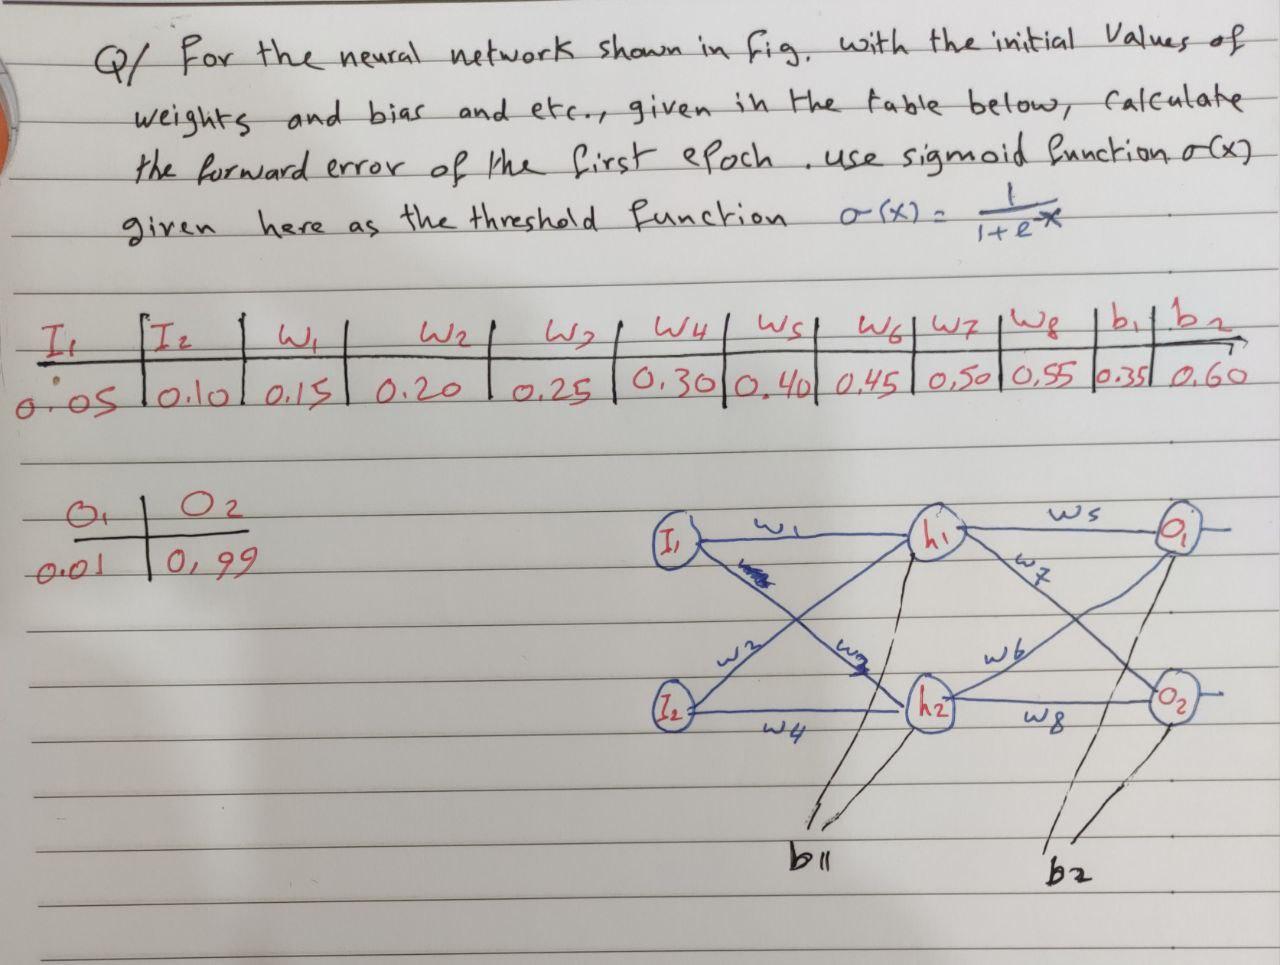 Q/ For the neural network shown in fig. with the initial Values of
weights and bias and etc., given in the table below, Calculate
the forward error of the first epoch. use sigmoid function σ(x)
given here as the threshold function σ(x) = 1/(1+e^-x)
I1 | I2 | W1 | W2 | W3 | W4 | W5 | W6 | W7 | W8 | b1 | b2
0.05 | 0.10 | 0.15 | 0.20 | 0.25 | 0.30 | 0.40 | 0.45 | 0.50 | 0.55 | 0.35 | 0.60
O1 | O2
0.01 | 0,99
I1 w1 h1 w5 O1
w7
w2 w3 w6
I2 w4 h2 w8 O2
b11 b2